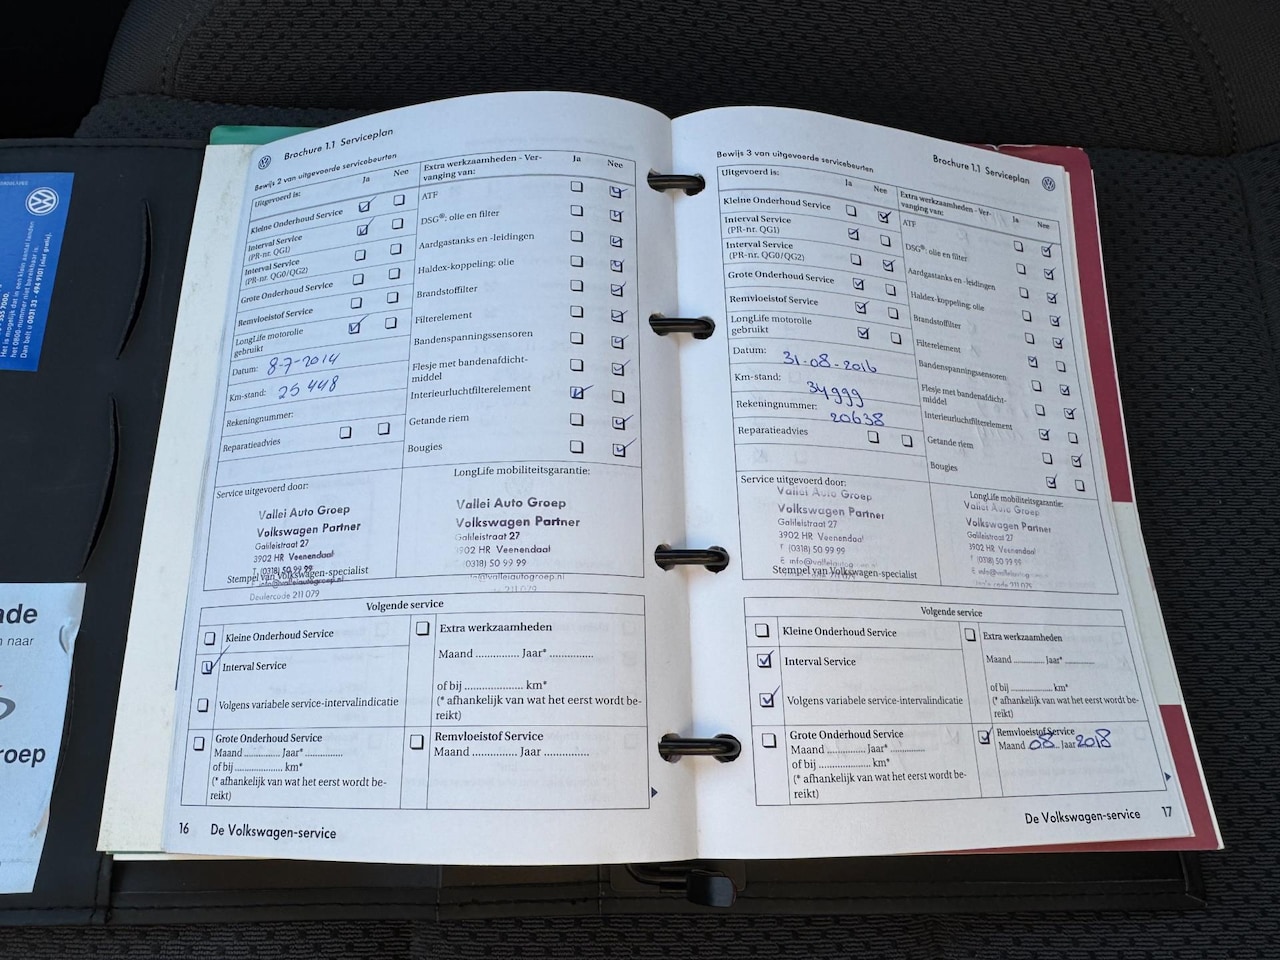 355 7000.
Het is mogelijk dat in een klein aantal landen
het 0800-nummer niet bereikbaar is.
Dan belt u 0031 33 - 494 9101 (niet gratis).
ade
n naar
roep
Brochure 1.1 Serviceplan
Bewijs 2 van uitgevoerde servicebeurten
Uitgevoerd is:
Ja
Nee
Kleine Onderhoud Service
Interval Service
(PR-nr. QG1)
Interval Service
(PR-nr. QG0/QG2)
Grote Onderhoud Service
Remvloeistof Service
LongLife motorolie
gebruikt
Datum: 8-7-2014
Km-stand: 25 448
Rekeningnummer:
Reparatieadvies
Extra werkzaamheden - Ver-
vanging van:
Ja
Nee
ATF
DSG®: olie en filter
Aardgastanks en -leidingen
Haldex-koppeling: olie
Brandstoffilter
Filterelement
Bandenspanningssensoren
Flesje met bandenafdicht-
middel
Interieurluchtfilterelement
Getande riem
Bougies
Service uitgevoerd door:
Vallei Auto Groep
Volkswagen Partner
Galileistraat 27
3902 HR Veenendaal
T (0318) 50 99 99
Stempel van Volkswagen-specialist
Dealercode 211 079
LongLife mobiliteitsgarantie:
Vallei Auto Groep
Volkswagen Partner
Galileistraat 27
3902 HR Veenendaal
(0318) 50 99 99
info@valleiautogroep.nl
211 079
Volgende service
Kleine Onderhoud Service
Interval Service
Volgens variabele service-intervalindicatie
Grote Onderhoud Service
Maand ............... Jaar* ...............
of bij .................... km*
(* afhankelijk van wat het eerst wordt be-
reikt)
Extra werkzaamheden
Maand ............... Jaar* ...............
of bij .................... km*
(* afhankelijk van wat het eerst wordt be-
reikt)
Remvloeistof Service
Maand ............... Jaar ...............
16 De Volkswagen-service
Brochure 1.1 Serviceplan
Bewijs 3 van uitgevoerde servicebeurten
Uitgevoerd is:
Ja
Nee
Kleine Onderhoud Service
Interval Service
(PR-nr. QG1)
Interval Service
(PR-nr. QG0/QG2)
Grote Onderhoud Service
Remvloeistof Service
LongLife motorolie
gebruikt
Datum: 31-08-2016
Km-stand: 34999
Rekeningnummer: 20638
Reparatieadvies
Extra werkzaamheden - Ver-
vanging van:
Ja
Nee
ATF
DSG®: olie en filter
Aardgastanks en -leidingen
Haldex-koppeling: olie
Brandstoffilter
Filterelement
Bandenspanningssensoren
Flesje met bandenafdicht-
middel
Interieurluchtfilterelement
Getande riem
Bougies
Service uitgevoerd door:
Vallei Auto Groep
Volkswagen Partner
Galileistraat 27
3902 HR Veenendaal
T (0318) 50 99 99
E info@valleiautogroep.nl
Stempel van Volkswagen-specialist
LongLife mobiliteitsgarantie:
Vallei Auto Groep
Volkswagen Partner
Galileistraat 27
3902 HR Veenendaal
(0318) 50 99 99
Volgende service
Kleine Onderhoud Service
Interval Service
Volgens variabele service-intervalindicatie
Grote Onderhoud Service
Maand ............... Jaar* ...............
of bij .................... km*
(* afhankelijk van wat het eerst wordt be-
reikt)
Extra werkzaamheden
Maand ............... Jaar* ...............
of bij .................... km*
(* afhankelijk van wat het eerst wordt be-
reikt)
Remvloeistof Service
Maand 08 Jaar 2018
De Volkswagen-service 17